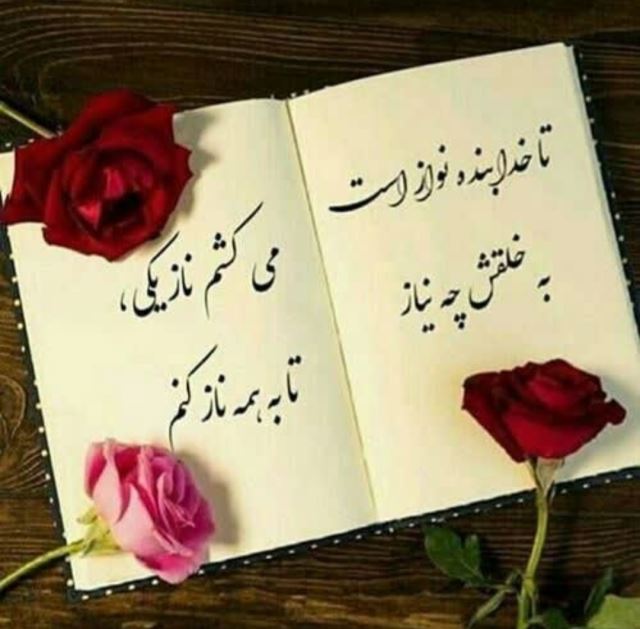 تا خدا بنده نواز است
به خلقش چه نیاز
می کشم ناز یکی،
تا به همه ناز کنم